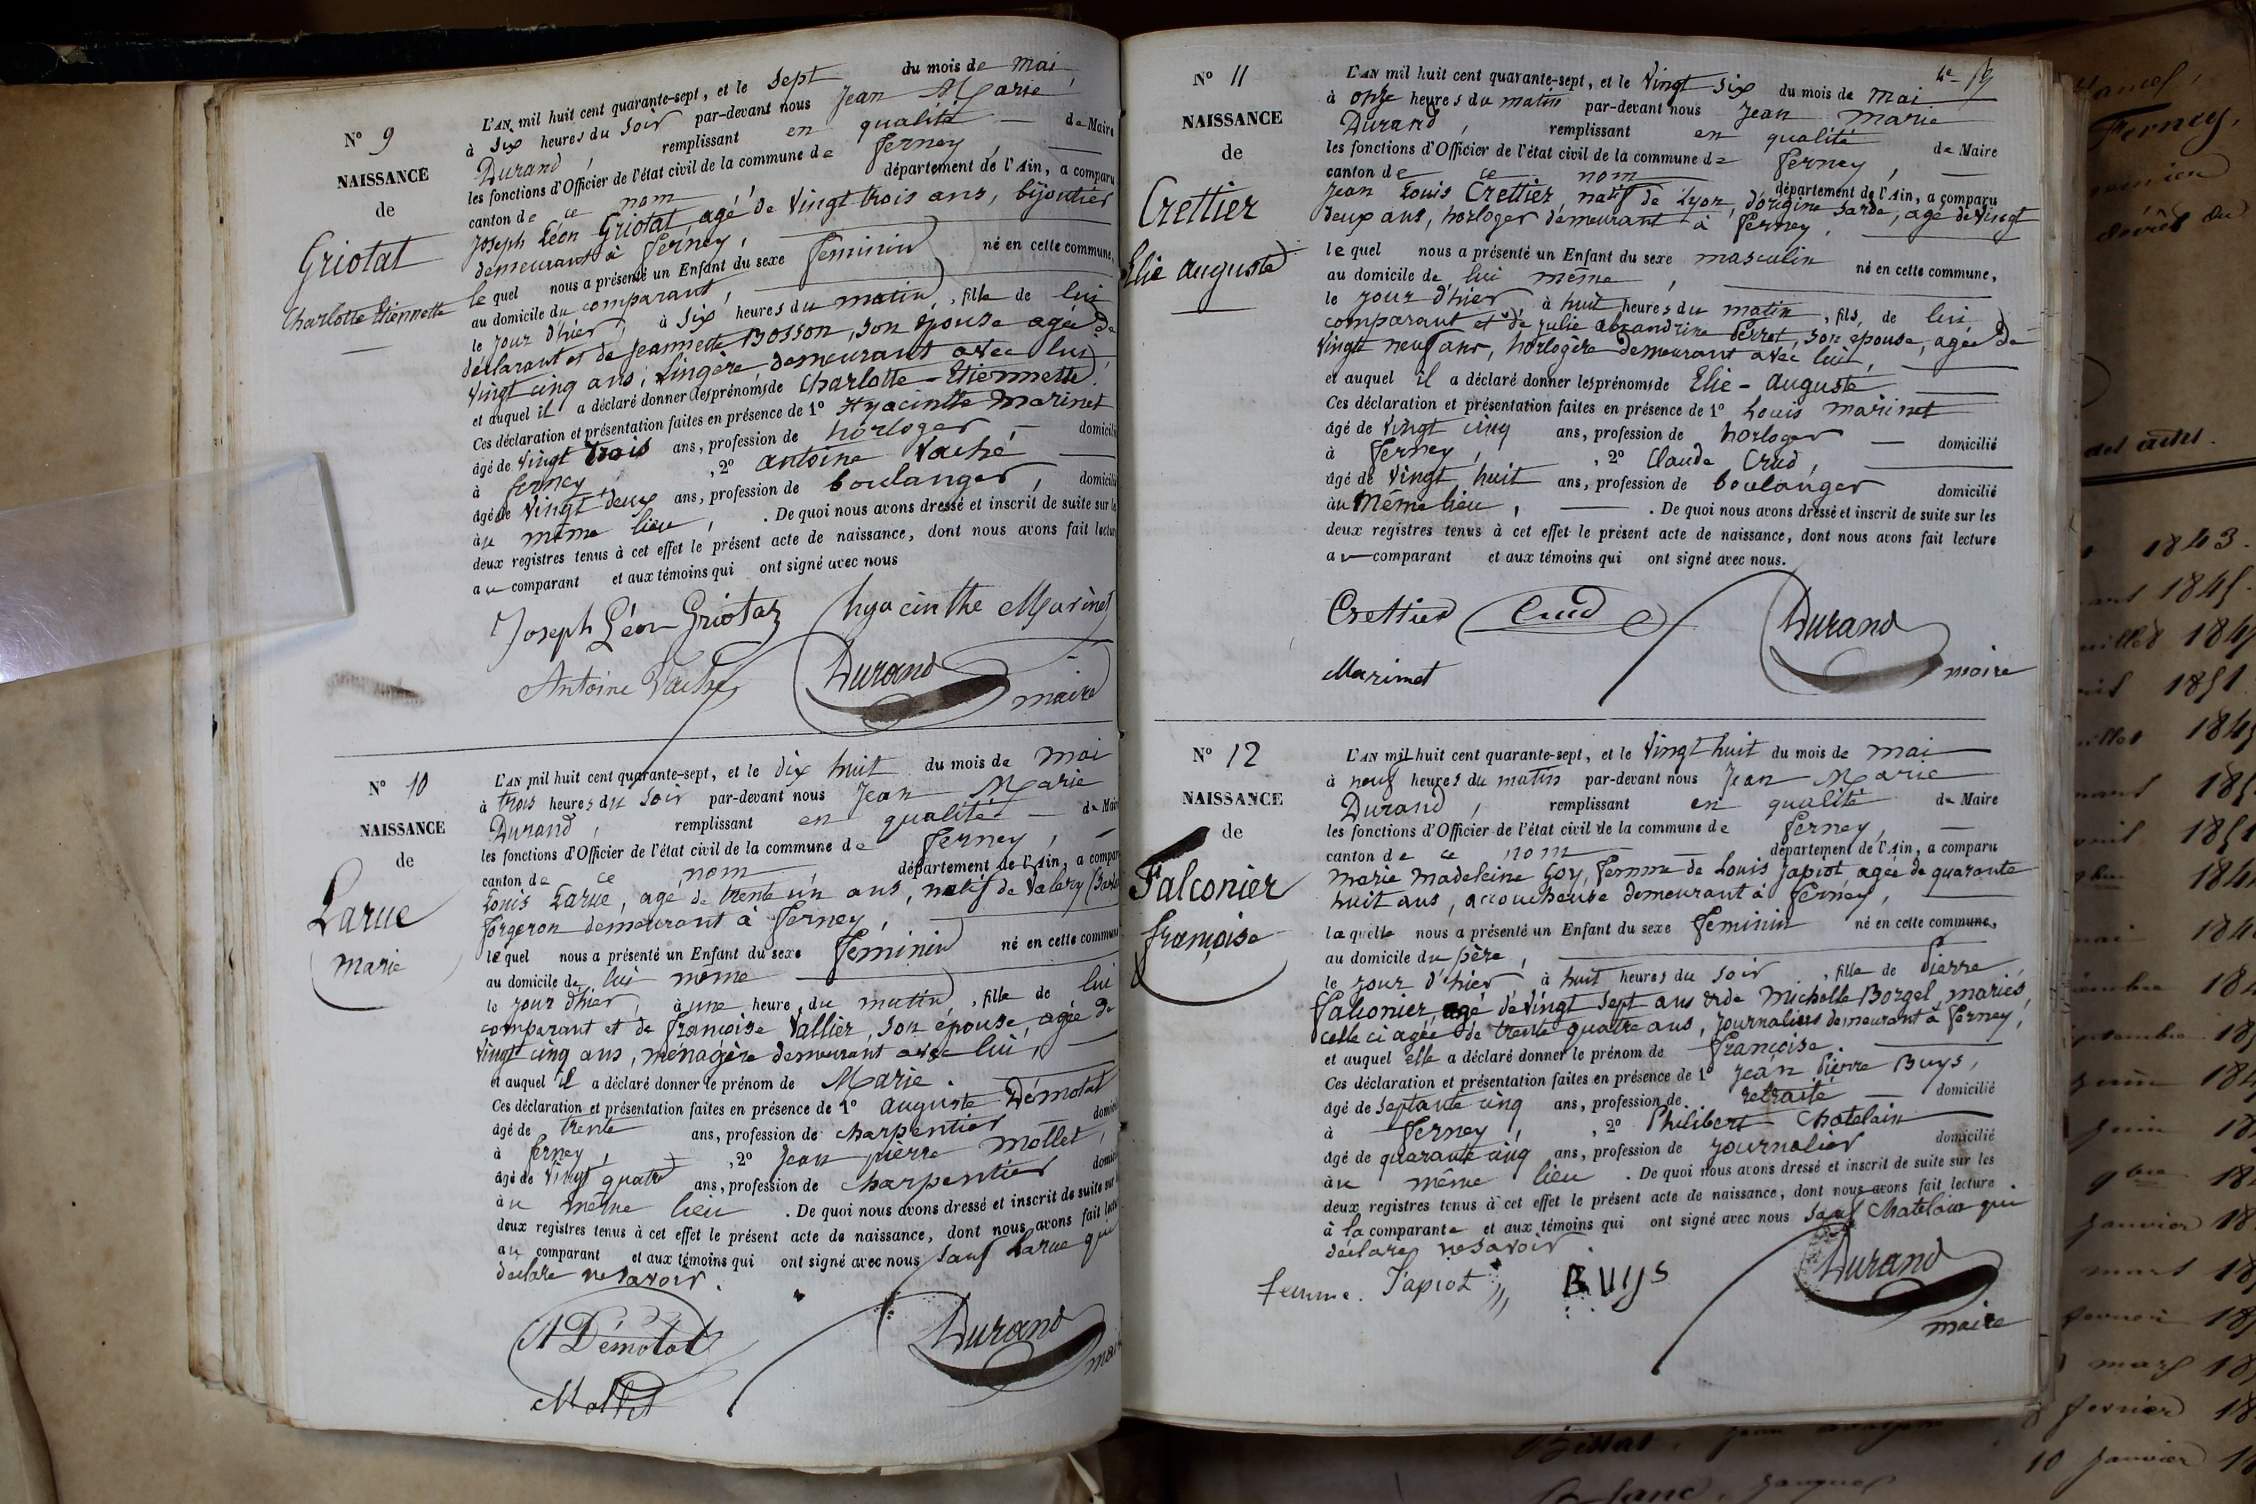 N° 9
NAISSANCE
de
Griotat
Charlotte Etiennette
L'AN mil huit cent quarante-sept, et le sept du mois de mai,
à six heures du soir par-devant nous Jean Marie
Durand, remplissant en qualité de Maire
les fonctions d'Officier de l'état civil de la commune de ferney,
canton de ce nom département de l'Ain, a comparu
Joseph Léon Griotat agé de vingt trois ans, bijoutier
demeurant à ferney,
le quel nous a présenté un Enfant du sexe feminin né en cette commune,
au domicile du comparant,
le jour d'hier, à six heures du matin, fille de lui
déclarant et de jeannette Bosson, son épouse agée de
vingt cinq ans, lingère demeurant avec lui,
et auquel il a déclaré donner les prénoms de Charlotte-Etiennette.
Ces déclaration et présentation faites en présence de 1° Hyacinthe Marinet
âgé de vingt trois ans, profession de horloger domicilié
à ferney, 2° antoine Vaché
âgé de vingt deux ans, profession de boulanger, domicilié
au même lieu, . De quoi nous avons dressé et inscrit de suite sur les
deux registres tenus à cet effet le présent acte de naissance, dont nous avons fait lecture
au comparant et aux témoins qui ont signé avec nous
Joseph Léon Griotat hyacinthe Marinet
Antoine Vaché Durand
maire
N° 10
NAISSANCE
de
Larue
marie
L'AN mil huit cent quarante-sept, et le dix huit du mois de mai
à trois heures du soir par-devant nous Jean Marie
Durand, remplissant en qualité de Maire
les fonctions d'Officier de l'état civil de la commune de ferney,
canton de ce nom département de l'Ain, a comparu
Louis Larue, agé de trente un ans, natif de Valery
forgeron demeurant à ferney,
lequel nous a présenté un Enfant du sexe feminin né en cette commune
au domicile de lui même
le jour d'hier, à une heure du matin, fille de lui
comparant et de françoise Vallier, son épouse, agée de
vingt cinq ans, ménagère demeurant avec lui,
et auquel il a déclaré donner le prénom de Marie.
Ces déclaration et présentation faites en présence de 1° auguste Démotat
âgé de trente ans, profession de charpentier
à ferney, 2° Jean pierre Mollet,
âgé de vingt quatre ans, profession de charpentier
au même lieu . De quoi nous avons dressé et inscrit de suite sur
deux registres tenus à cet effet le présent acte de naissance, dont nous avons fait
au comparant et aux témoins qui ont signé avec nous sauf Larue qui
declare ne savoir.
A Démotat Durand
Mollet
N° 11
NAISSANCE
de
Crettier
Elie auguste
L'AN mil huit cent quarante-sept, et le vingt six du mois de mai
à onze heures du matin par-devant nous Jean marie
Durand, remplissant en qualité de Maire
les fonctions d'Officier de l'état civil de la commune de ferney,
canton de ce nom département de l'Ain, a comparu
jean Louis Crettier, natif de Lyon, d'origine Sarde, agé de vingt
deux ans, horloger demeurant à ferney,
le quel nous a présenté un Enfant du sexe masculin né en cette commune,
au domicile de lui même,
le jour d'hier à huit heures du matin, fils de lui
comparant et de julie alexandrine Perret, son épouse, agée de
vingt neuf ans, horlogère demeurant avec lui,
et auquel il a déclaré donner les prénoms de Elie-auguste
Ces déclaration et présentation faites en présence de 1° Louis marinet
âgé de vingt cinq ans, profession de horloger domicilié
à ferney, 2° Claude Crud,
âgé de vingt huit ans, profession de boulanger domicilié
au Même lieu, . De quoi nous avons dressé et inscrit de suite sur les
deux registres tenus à cet effet le présent acte de naissance, dont nous avons fait lecture
au comparant et aux témoins qui ont signé avec nous.
Crettier Crud Durand
Marinet maire
N° 12
NAISSANCE
de
Falconier
françoise
L'AN mil huit cent quarante-sept, et le vingt huit du mois de mai
à neuf heures du matin par-devant nous Jean Marie
Durand, remplissant en qualité de Maire
les fonctions d'Officier de l'état civil de la commune de ferney,
canton de ce nom département de l'Ain, a comparu
marie madeleine Goy, femme de Louis Japiot agée de quarante
huit ans, accoucheuse demeurant à ferney,
laquelle nous a présenté un Enfant du sexe feminin né en cette commune,
au domicile du père,
le jour d'hier à huit heures du soir, fille de Pierre
falconier, agé de vingt sept ans et de Michelle Borgel, mariés,
celle ci agée de trente quatre ans, journaliers demeurant à ferney,
et auquel elle a déclaré donner le prénom de françoise.
Ces déclaration et présentation faites en présence de 1° Jean Pierre Buys,
âgé de septante cinq ans, profession de retraité domicilié
à ferney, 2° Philibert Chatelain
âgé de quarante cinq ans, profession de journalier domicilié
au même lieu . De quoi nous avons dressé et inscrit de suite sur les
deux registres tenus à cet effet le présent acte de naissance, dont nous avons fait lecture
à la comparante et aux témoins qui ont signé avec nous sauf Chatelain qui
déclare ne savoir.
femme Japiot Buys Durand
maire
Ferney,
1843.
1845.
1851
10 janvier